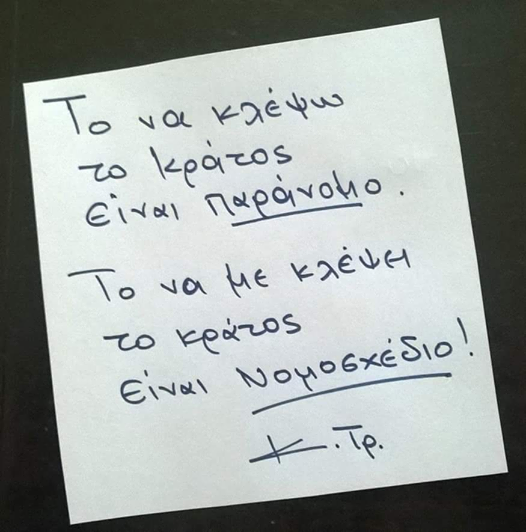 Το να κλέψω
το κράτος
είναι παράνομο.
Το να με κλέψει
το κράτος
είναι Νομοσχέδιο!
Κ.Τρ.